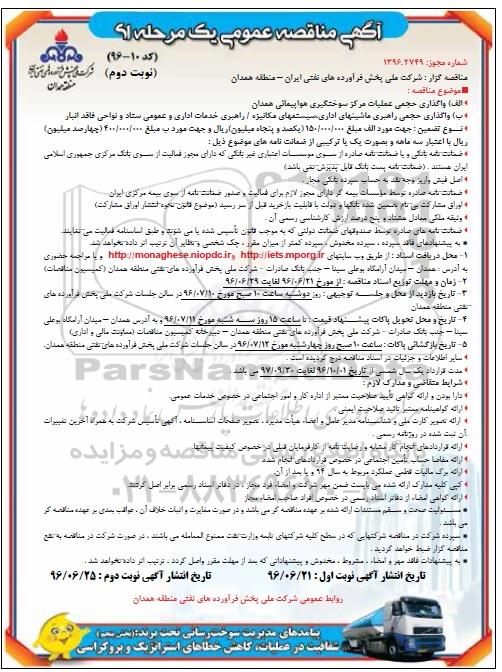 آگهی مناقصه عمومی یک مرحله ای
(کد ۱۰-۹۶)
(نوبت دوم)
شماره مجوز: ۱۳۹۶.۲۷۴۹
مناقصه گزار : شرکت ملی پخش فرآورده های نفتی ایران – منطقه همدان
موضوع مناقصه :
الف) واگذاری حجمی عملیات مرکز سوختگیری هواپیمائی همدان
ب) واگذاری حجمی راهبری ماشینهای اداری،سیستمهای مکانیزه / راهبری خدمات اداری و عمومی ستاد و نواحی فاقد انبار
نوع تضمین : جهت مورد الف مبلغ ۱۵۰/۰۰۰/۰۰۰ (یکصد و پنجاه میلیون)ریال و جهت مورد ب مبلغ ۴۰۰/۰۰۰/۰۰۰ (چهارصد میلیون)
ریال با اعتبار سه ماهه و بصورت یک یا ترکیبی از ضمانت نامه های موضوع ذیل :
ضمانت نامه بانکی و یا ضمانت نامه صادره از سوی موسسات اعتباری غیر بانکی که دارای مجوز فعالیت از سوی بانک مرکزی جمهوری اسلامی
ایران هستند . (ضمانت نامه پست بانک قابل پذیرش نمی باشد)
اصل فیش واریز وجه نقد به حساب سپرده بانکی مجاز
ضمانت نامه صادره توسط مؤسسات بیمه گر دارای مجوز لازم برای فعالیت و صدور ضمانت نامه از سوی بیمه مرکزی ایران
اوراق مشارکت بی نام تضمین شده بانکها و دولت با قابلیت بازخرید قبل از سر رسید (موضوع قانون نحوه انتشار اوراق مشارکت)
وثیقه ملکی معادل هشتاد و پنج درصد ارزش کارشناسی رسمی آن .
ضمانت نامه های صادره توسط صندوقهای ضمانت دولتی که به موجب قانون تأسیس شده یا می شوند و طبق اساسنامه فعالیت می نمایند.
به پیشنهادهای فاقد سپرده ، سپرده مخدوش ، سپرده کمتر از میزان مقرر ، چک شخصی و نظایر آن ترتیب اثر داده نخواهد شد.
۱- محل دریافت اسناد : از طریق وب سایتهای http://iets.mporg.ir و http://monaghese.niopdc.ir و یا مراجعه حضوری
به آدرس : همدان – میدان آرامگاه بوعلی سینا – جنب بانک صادرات – شرکت ملی پخش فرآورده های نفتی منطقه همدان (کمیسیون مناقصات)
۲- زمان و مهلت توزیع اسناد مناقصه : از مورخ ۹۶/۰۶/۲۱ لغایت ۹۶/۰۶/۲۹
۳- تاریخ بازدید از محل و جلسه توجیهی : روز دوشنبه ساعت ۱۰ صبح مورخ ۹۶/۰۷/۱۰ در سالن جلسات شرکت ملی پخش فرآورده های
نفتی منطقه همدان
۴- تاریخ و محل تحویل پاکات پیشنهاد قیمت : تا ساعت ۱۵ روز سه شنبه مورخ ۹۶/۰۷/۱۱ و به آدرس همدان – میدان آرامگاه بوعلی
سینا – جنب بانک صادرات – شرکت ملی پخش فرآورده های نفتی منطقه همدان – دبیرخانه کمیسیون مناقصات (معاونت مالی و اداری)
۵- تاریخ بازگشائی پاکات: ساعت ۱۰ صبح روز چهارشنبه مورخ ۹۶/۰۷/۱۲ در سالن جلسات شرکت ملی پخش فرآورده های نفتی منطقه همدان.
سایر اطلاعات و جزئیات در اسناد مناقصه درج گردیده است .
مدت قرارداد یک سال شمسی از تاریخ ۹۶/۱۰/۰۱ لغایت ۹۷/۰۹/۳۰ می باشد .
شرایط متقاضی و مدارک لازم :
دارا بودن و ارائه گواهی تأیید صلاحیت معتبر از اداره کار و امور اجتماعی در خصوص خدمات عمومی.
ارائه گواهینامه معتبر تائید صلاحیت ایمنی
ارائه تصویر کارت ملی و شناسنامه مدیر عامل و اعضاء هیأت مدیره ، تصویر صفحات اساسنامه ، آگهی تأسیس شرکت به همراه آخرین تغییرات
آن ثبت شده در روزنامه رسمی .
ارائه قراردادهای انجام کار مشابه و رضایت نامه از کارفرمایان قبلی در خصوص کیفیت پیمانها
ارائه مفاصا حساب تأمین اجتماعی در خصوص قراردادهای انجام شده.
ارائه برگ مالیات قطعی عملکرد مربوط به سال ۹۴ و یا بعد از آن
کپی کلیه مدارک ارائه شده می بایست ضمن مهر شرکت و امضاء فرد مجاز ، در دفاتر اسناد رسمی برابر اصل گردند.
ارائه گواهی امضاء از دفاتر اسناد رسمی در خصوص افراد صاحب امضاء مجاز
مسئولیت صحت و سقم مستندات ارائه شده بر عهده مناقصه گر می باشد و در صورت مغایرت و اثبات خلاف آن ، عواقب بعدی بر عهده مناقصه گر
می باشد .
سپرده شرکت در مناقصه شرکتهایی که در سطح کلیه شرکتهای تابعه وزارت نفت ممنوع المعامله می باشند ، در صورت شرکت در مناقصه به نفع
مناقصه گزار ضبط خواهد گردید .
به پیشنهادات فاقد مهر و امضاء ، مشروط ، مخدوش و پیشنهاداتی که بعد از مهلت مقرر واصل گردد ، ترتیب اثر داده نخواهد شد .
تاریخ انتشار آگهی نوبت اول : ۹۶/۰۶/۲۱ تاریخ انتشار آگهی نوبت دوم : ۹۶/۰۶/۲۵
روابط عمومی شرکت ملی پخش فرآورده های نفتی منطقه همدان
پیامدهای مدیریت سوخت رسانی تحت برند:(بخش پنجم)
شفافیت در عملیات، کاهش خطاهای استراتژیک و بروکراسی